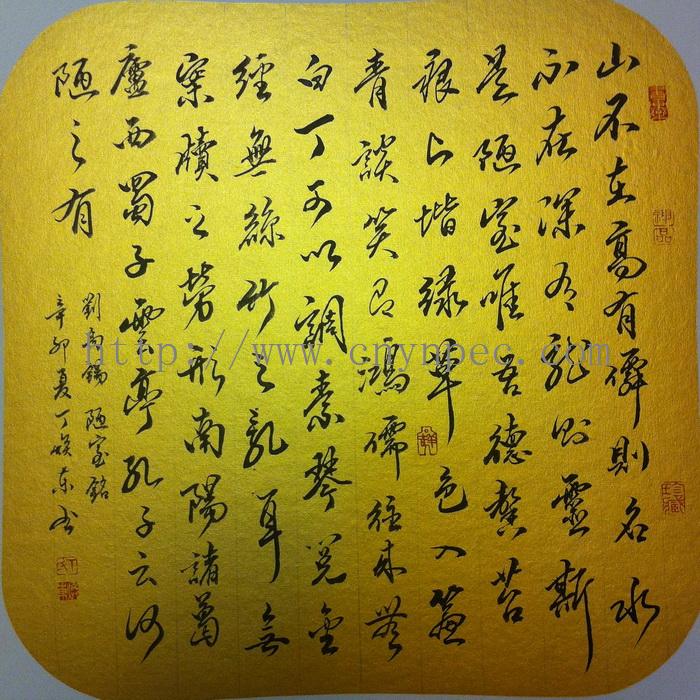 山不在高有僊則名水
不在深有龍則靈斯
是陋室唯吾德馨苔
痕上堦綠草色入簾
青談笑有鴻儒往来無
白丁可以調素琴閱金
經無絲竹之亂耳無
案牘之勞形南陽諸葛
廬西蜀子雲亭孔子云何
陋之有
劉禹錫陋室銘
辛卯夏丁東书
神品
珍藏
http://www.cnynpec.com